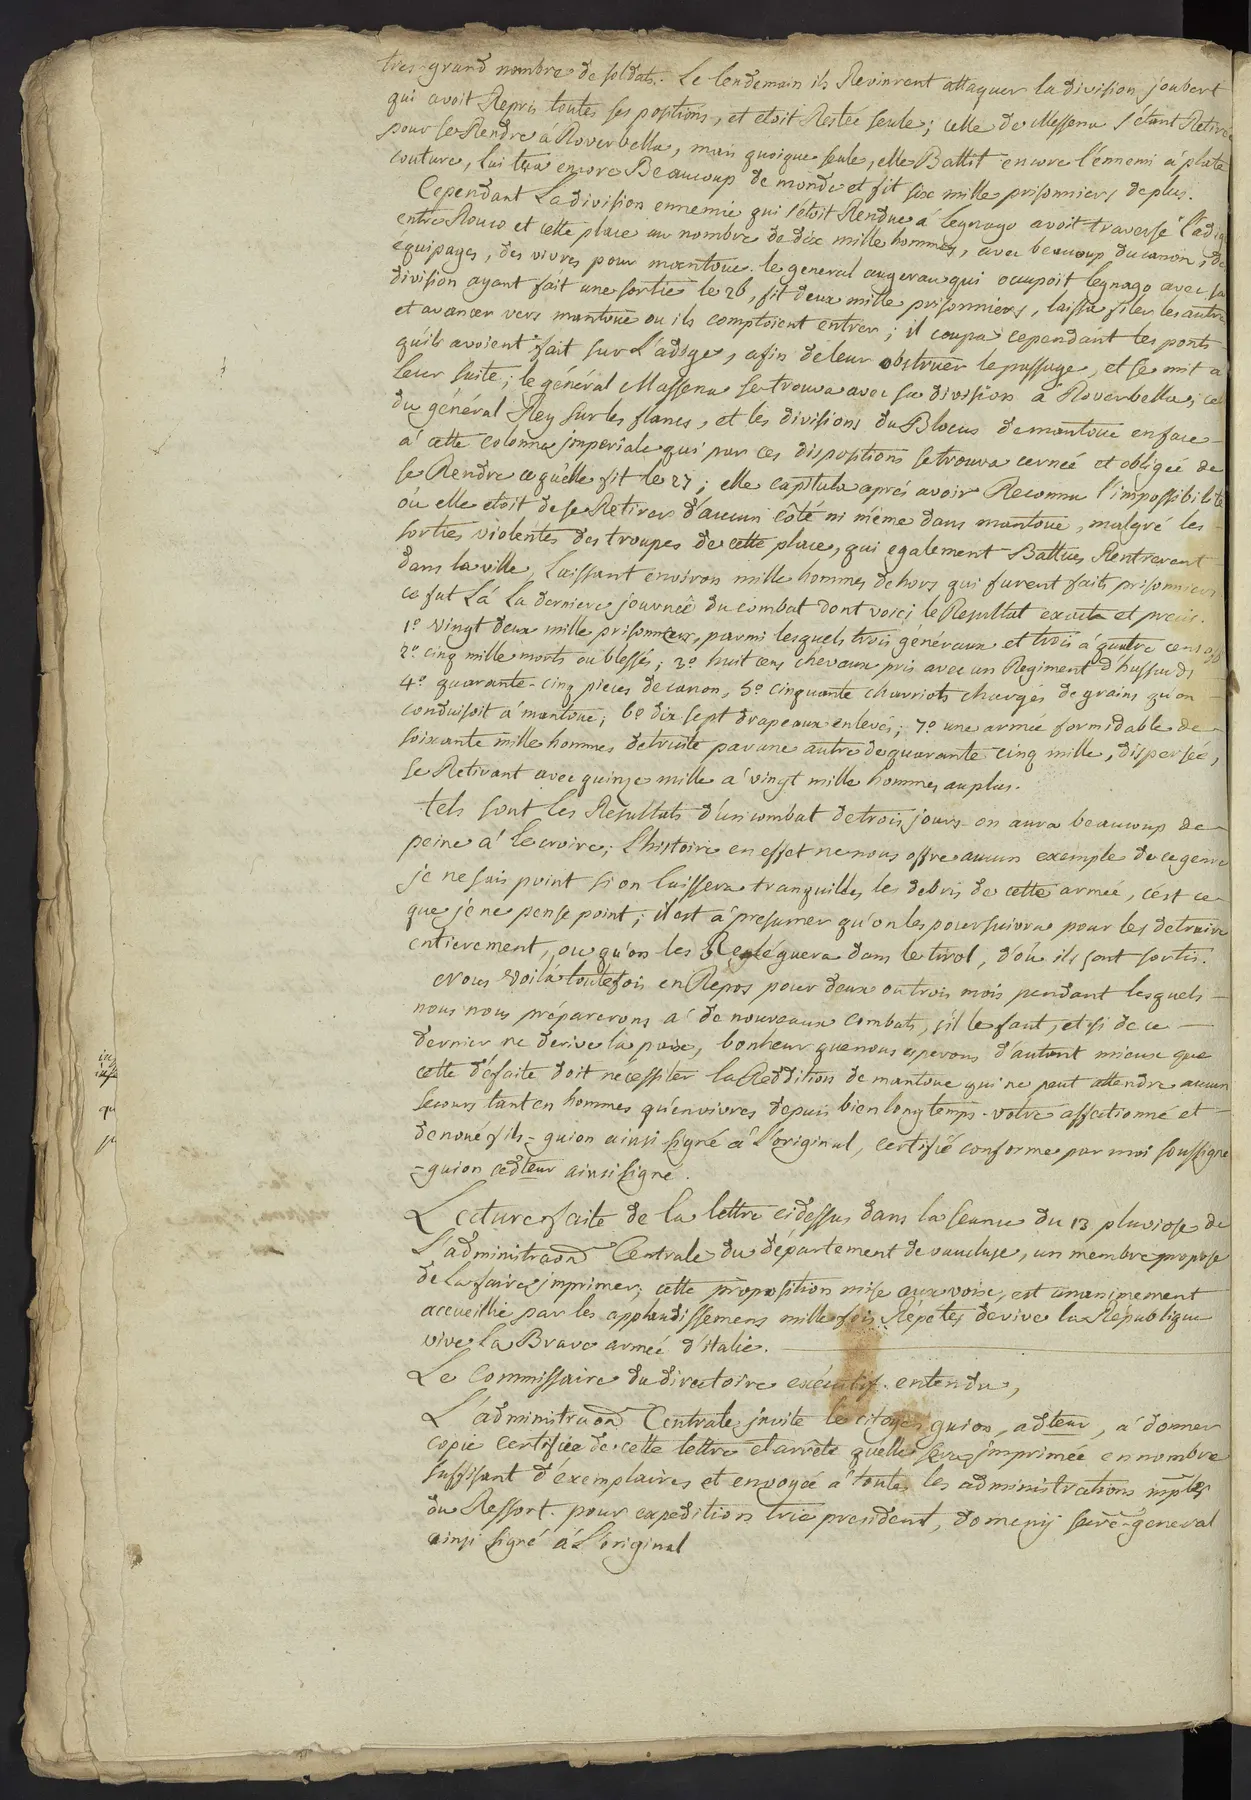 tres grand nombre de soldats. Le lendemain ils Revinrent attaquer la division joubert
qui avoit Repris toutes ses positions, et etoit Restée seule; celle de Messena s'étant Retiré
pour se Rendre a Roverbella, mais quoique seule, elle Battit encore l'énnemi a plate
couture, lui tua encore Beaucoup de monde et fit six mille prisonniers de plus.
Cependant La division ennemie qui s'étoit Rendue a Legnago avoit traversé l'adig
entre Ronco et cette place au nombre de dix mille hommes, avec beaucoup du canon, de
équipages, des vivres pour mantoue. le general augerau qui ocupoit legnago avec sa
division ayant fait une sortie le 26, fit deux mille prisonniers, laissa filer les autre
et avancer vers mantoue ou ils comptoient entrer; il coupa cependant les ponts
qu'ils avoient fait sur L'adige, afin de leur obstruer le passage, et se mit a
leur suite; le général Massena se trouva avec sa division a Roverbella; cel
du général Rey sur les flancs, et les divisions du Blocus de mantoue en face
a cette colonne imperiale qui par ces dispositions se trouva cernée et obligée de
se Rendre ce qu'elle fit le 27; elle capitula aprés avoir Reconnu l'impossibilité
où elle etoit de se Retirer d'aucun côté ni même dans mantoue, malgré les
sorties violentes des troupes de cette place, qui egalement Battues Rentrerent
dans la ville, Laissant environ mille hommes dehors qui furent faits prisonniers
ce fut Là La derniere journeé du combat dont voici le Resultat exacte et precis.
1º vingt deux mille prisonniers, parmi lesquels trois généraux et trois à quatre cens
2º cinq mille morts ou blessés; 3º huit cens chevaux pris avec un Regiment d'hussards
4º quarante-cinq pieces de canon, 5º cinquante charriots chargés de grains qu'on
conduisoit a mantoue; 6º dix sept drapeaux enlevés; 7º une armée formidable de
soixante mille hommes detruite par une autre de quarante cinq mille, dispersée,
se Retirant avec quinze mille a vingt mille hommes au plus.
tels sont les Resultats d'un combat de trois jours on aura beaucoup de
peine a le croire; l'histoire en effet ne nous offre aucun exemple de ce genre
je ne sais point si on laissera tranquilles les debris de cette armeé, c'est ce
que je ne pense point; il est a presumer qu'on les poursuivra pour les detruire
entierement, ou qu'on les Regléguera dans le tirol, d'où ils sont sortis.
Nous voila toutefois en Repos pour deux ou trois mois pendant lesquels
nous nous préparerons a de nouveaux combats, s'il le faut, et si de ce
dernier ne dérive la paix, bonheur que nous esperons d'autant mieux que
cette défaite doit nécessiter la Reddition de mantoue qui ne peut attendre aucun
secours tant en hommes qu'en vivres depuis bien longtemps. votre affectionné et
devoué fils = guion ainsi signé a L'original, certifié conforme par moi soussigné
= guion adteur ainsi signé.
Lecture faite de la lettre cidessus dans la seance du 13 pluviose de
L'administraon Centrale du département de vaucluse, un membre propose
de la faire imprimer; cette proposition mise aux voix, est unanimement
accueillie par les applaudissemens mille fois Répetés de vive la République
vive la Brave armeé d'italie.
Le Commissaire du directoire exécutif. entendu,
L'administraon Centrale invite le citoyen guion, adteur, a donner
copie certifiée de cette lettre et arrête quelle sera imprimée en nombre
suffisant d'éxemplaires et envoyée a toutes les administrations mples
du Ressort. pour expedition tric president, domenij secre. general
ainsi signé á L'original